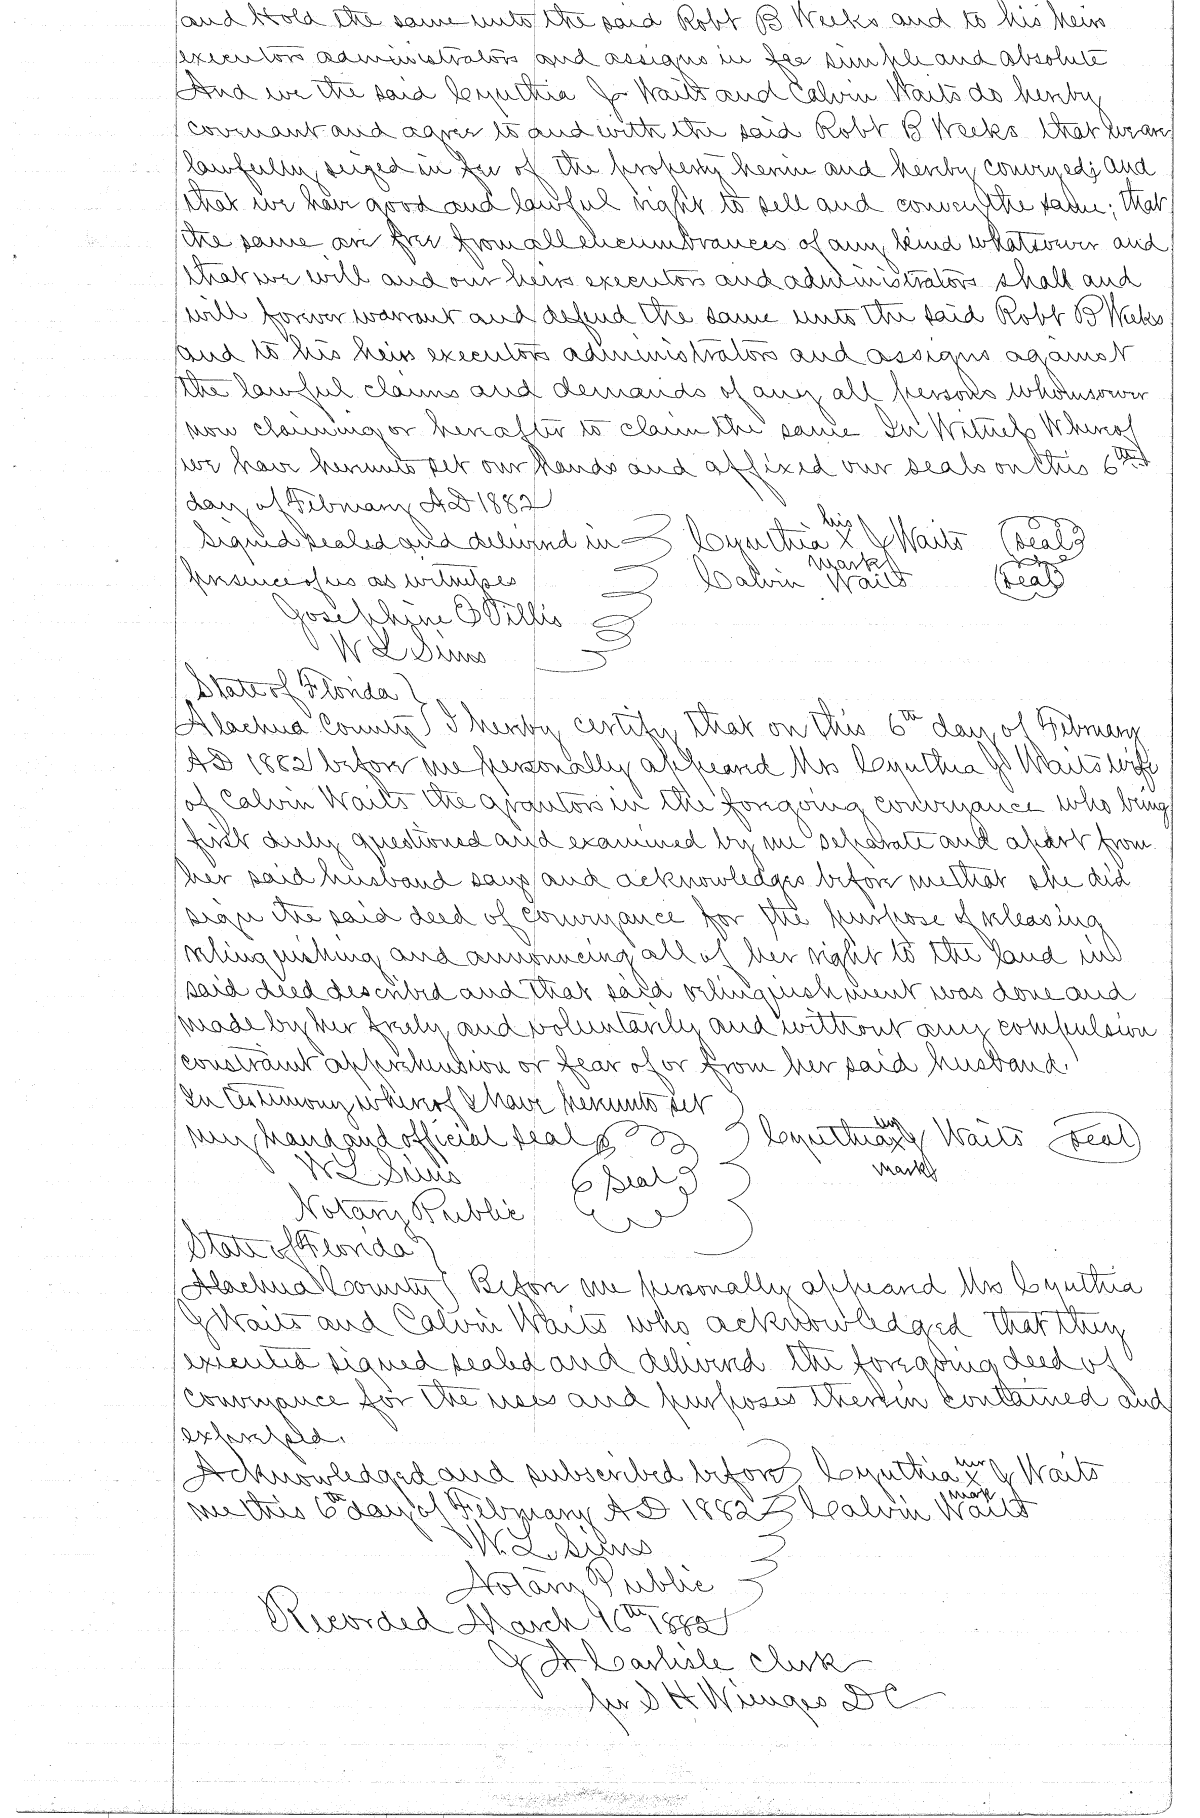 and Hold the same unto the said Robt B Weeks and to his heirs
executors administrators and assigns in fee simple and absolute
And we the said Cynthia J Waits and Calvin Waits do hereby
covenant and agree to and with the said Robt B Weeks that we are
lawfully seized in fee of the property herein and hereby conveyed; and
that we have good and lawful right to sell and convey the same; that
the same are free from all encumbrances of any kind whatsoever and
that we will and our heirs executors and administrators shall and
will forever warrant and defend the same unto the said Robt B Weeks
and to his heirs executors administrators and assigns against
the lawful claims and demands of any all persons whomsoever
now claiming or hereafter to claim the same In Witness Whereof
we have hereunto set our hands and affixed our seals on this 6th
day of February AD 1882
Signed sealed and delivered in Cynthia his X mark J Waits (Seal)
presence of us as witnesses Calvin Waits (Seal)
Josephine C Tillis
W L Sims
State of Florida
Alachua County I hereby certify that on this 6th day of February
AD 1882 before me personally appeared Mrs Cynthia J Waits wife
of Calvin Waits the grantors in the foregoing conveyance who being
first duly questioned and examined by me separate and apart from
her said husband says and acknowledges before me that she did
sign the said deed of conveyance for the purpose of releasing
relinquishing and announcing all of her right to the land in
said deed described and that said relinquishment was done and
made by her freely and voluntarily and without any compulsion
constraint apprehension or fear of or from her said husband.
In testimony whereof I have hereunto set
my hand and official seal Cynthia X mark J Waits (Seal)
W L Sims (Seal)
Notary Public
State of Florida
Alachua County Before me personally appeared Mrs Cynthia
J Waits and Calvin Waits who acknowledged that they
executed signed sealed and delivered the foregoing deed of
conveyance for the uses and purposes therein contained and
expressed.
Acknowledged and subscribed before Cynthia her X mark J Waits
me this 6th day of February AD 1882 Calvin Waits
W. L. Sims
Notary Public
Recorded March 16th 1882
J A Carlisle Clerk
per S H Wienges DC